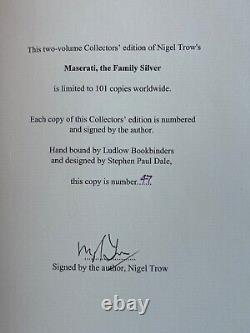 This two-volume Collectors' edition of Nigel Trow's
Maserati, the Family Silver
is limited to 101 copies worldwide.
Each copy of this Collectors' edition is numbered
and signed by the author.
Hand bound by Ludlow Bookbinders
and designed by Stephen Paul Dale,
this copy is number 47.
Signed by the author, Nigel Trow